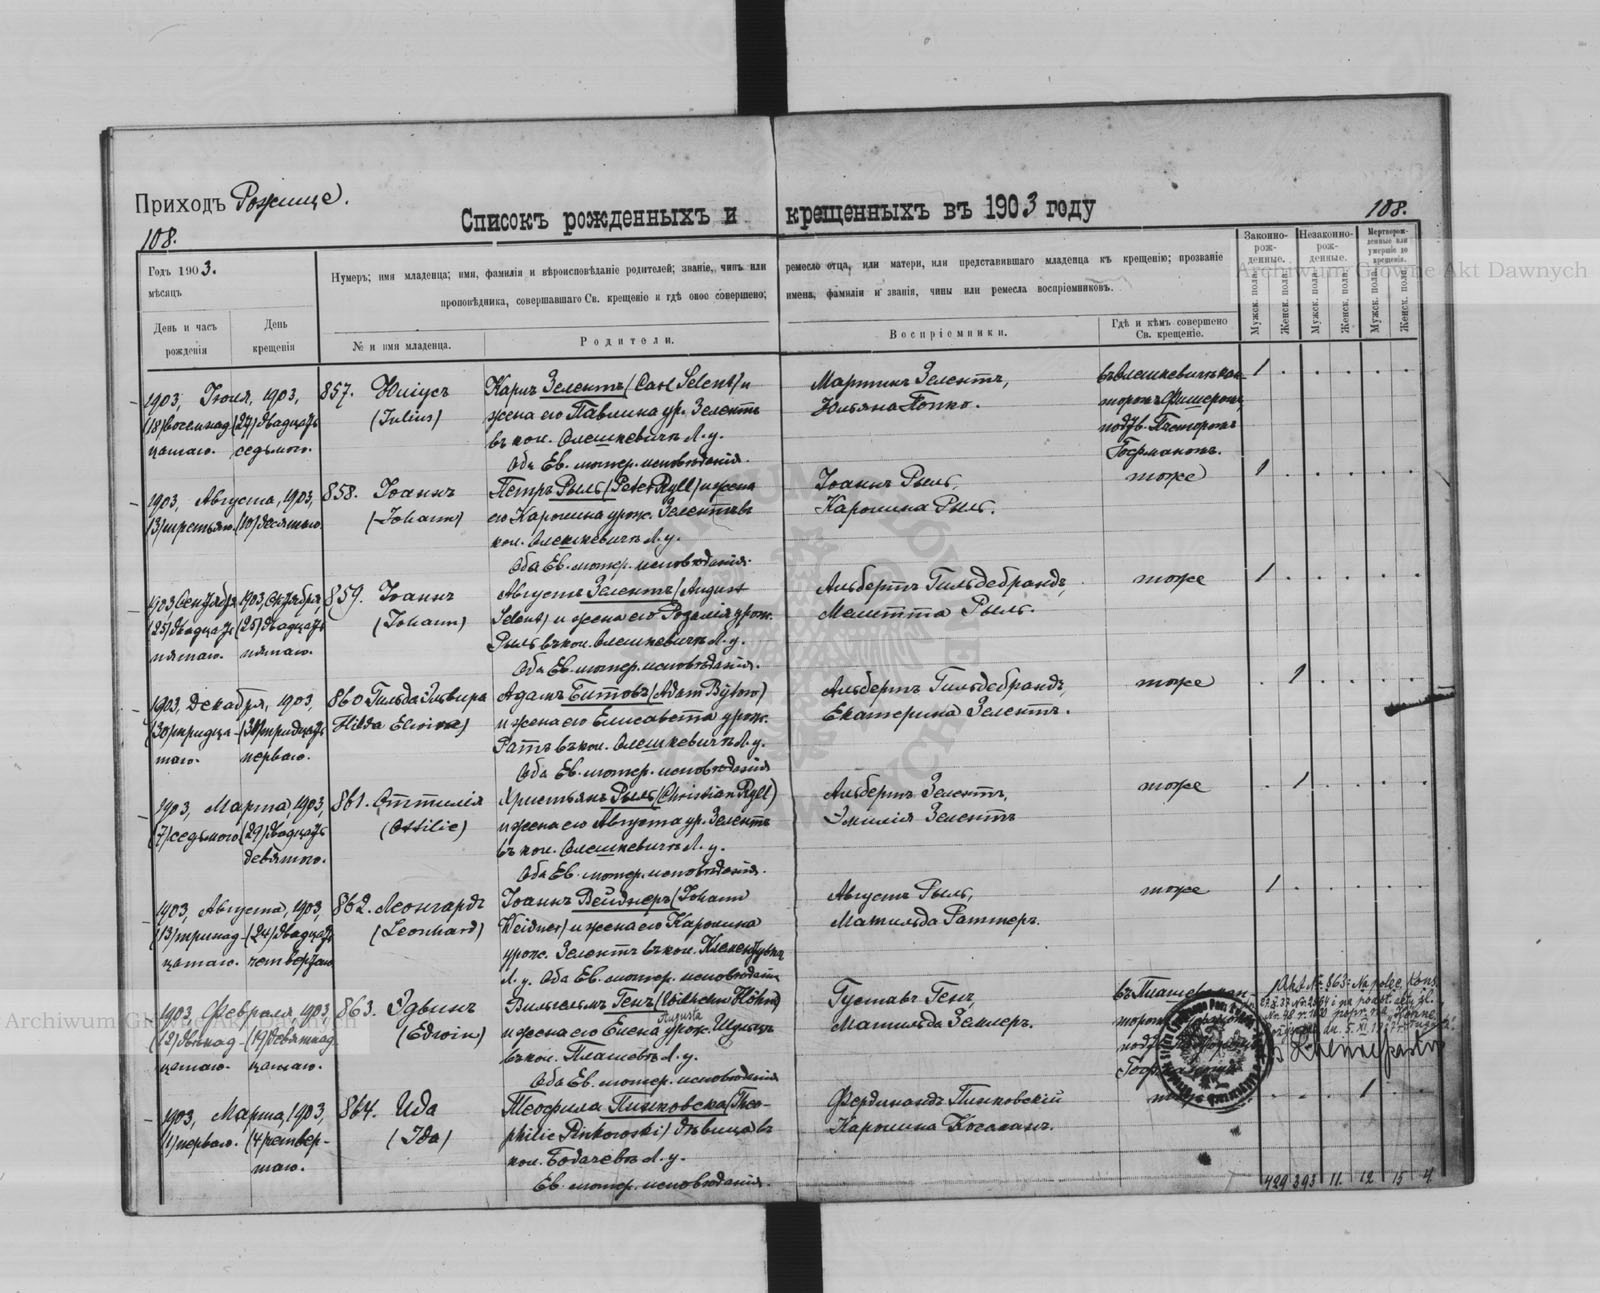 Приходъ Рожище.
Списокъ рожденныхъ и крещенныхъ въ 1903 году
108.
108.
Годъ 1903.
мѣсяцъ
День и часъ рожденія
День крещенія
Нумеръ; имя младенца; имя, фамилія и вѣроисповѣданіе родителей; званіе, чинъ или ремесло отца, или матери, или представившаго младенца къ крещенію; прозваніе
проповѣдника, совершавшаго Св. крещеніе и гдѣ оное совершено; имена, фамиліи и званія, чины или ремесла воспріемниковъ.
№ и имя младенца.
Родители.
Воспріемники.
Гдѣ и кѣмъ совершено Св. крещеніе.
Законно-рож-денные.
Незаконно-рож-денные.
Мертворож-денные или умершіе до крещенія.
Мужск. пола.
Женск. пола.
Мужск. пола.
Женск. пола.
Мужск. пола.
Женск. пола.
Archiwum Główne Akt Dawnych
1903, Июля, 1903,
(18) восемнад-цатаго.
(27) двадцать седьмого.
857. Юліусъ
(Julius)
Карлъ Зелентъ (Carl Selent) и
жена его Павлина ур. Зелентъ
въ кол. Олешкевичъ Л. у.
Оба Ев. лютер. исповѣданія.
Мартинъ Зелентъ,
Юльяна Попко.
въ Олешкевичъ кан-
торомъ Фишеромъ,
подтв. Пасторомъ
Госрманомъ.
1
1903, Августа, 1903,
(3) третьяго
(10) десятаго
858. Іоаннъ
(Johann)
Петръ Рыль (Peter Ryll) и жена
его Каролина урож. Зелентъ въ
кол. Олешкевичъ Л. у.
Оба Ев. лютер. исповѣданія.
Іоаннъ Рыль,
Каролина Рыль.
тоже
1
1903 Сентября 1903, Октября,
(25) двадцать пятаго.
(25) двадцать пятаго.
859. Іоаннъ
(Johann)
Августъ Зелентъ (August
Selent) и жена его Розалія урож.
Рыль въ кол. Олешкевичъ Л. у.
Оба Ев. лютер. исповѣданія.
Альбертъ Гильдебрандъ,
Мелитта Рыль.
тоже
1
1903, Декабря, 1903,
(30) тридца-таго.
(31) тридцать перваго.
860 Гильда Эльвира
Hilda Elwira)
Адамъ Битовъ (Adam Bytow)
и жена его Елисавета урож.
Ратъ въ кол. Олешкевичъ Л. у.
Оба Ев. лютер. исповѣданія
Альбертъ Гильдебрандъ,
Екатерина Зелентъ.
тоже
1
1903, Марта, 1903,
(7) седьмого
(29) двадцать девятаго.
861. Оттилія
(Ottilie)
Христьянъ Рыль (Christian Ryll)
и жена его Августа ур. Зелентъ
въ кол. Олешкевичъ Л. у.
Оба Ев. лютер. исповѣданія.
Альбертъ Зелентъ,
Эмилія Зелентъ
тоже
1
1903, Августа, 1903,
(13) тринад-цатаго.
(24) двадцать четвертаго
862. Леонгардъ
(Leonhard)
Іоаннъ Вейднеръ (Johann
Weidner) и жена его Каролина
урож. Зелентъ въ кол.
Л. у. Оба Ев. лютер. исповѣданія
Августъ Рыль,
Матильда Раттеръ.
тоже
1
1903, Февраля, 1903,
(12) двенад-цатаго.
(19) девятнад-цатаго.
863. Эдвинъ
(Edwin)
Вильгельмъ Генъ (Wilhelm Höhn)
Augusta
и жена его Елена урож. Шульцъ
въ кол. Пляшевъ Л. у.
Оба Ев. лютер. исповѣданія
Густавъ Генъ,
Матильда Землеръ.
1903, Марта, 1903,
(1) перваго.
(4) четвер-таго.
864. Ида
(Ida)
Теофила Пинковска (Theo-
philie Pinkowski) дѣвица въ
кол. Бодячевъ Л. у.
Ев. лютер. исповѣданія.
Фердинандъ Пинковскій
Каролина
тоже
1
429 393 11. 12 15 4